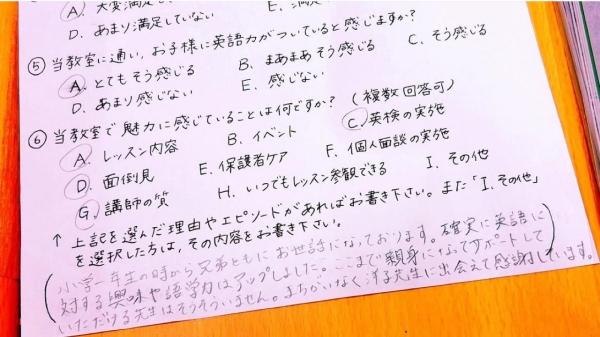 A. 大変満足し
D. あまり満足していない E. 満足し
⑤ 当教室に通い、お子様に英語力がついていると感じますか?
A. とてもそう感じる B. まあまあそう感じる C. そう感じる
D. あまり感じない E. 感じない
⑥ 当教室で魅力に感じていることは何ですか? (複数回答可)
A. レッスン内容 B. イベント C. 英検の実施
D. 面倒見 E. 保護者ケア F. 個人面談の実施
G. 講師の質 H. いつでもレッスン参観できる I. その他
↑ 上記を選んだ理由やエピソードがあればお書き下さい。また「I. その他」
を選択した方は、その内容をお書き下さい。
小学一年生の時から兄弟ともにお世話になっております。確実に英語に
対する興味や語学力はアップしました。ここまで親身になってサポートして
いただける先生はそうそういません。まちがいなく 先生に出会えて感謝しています。